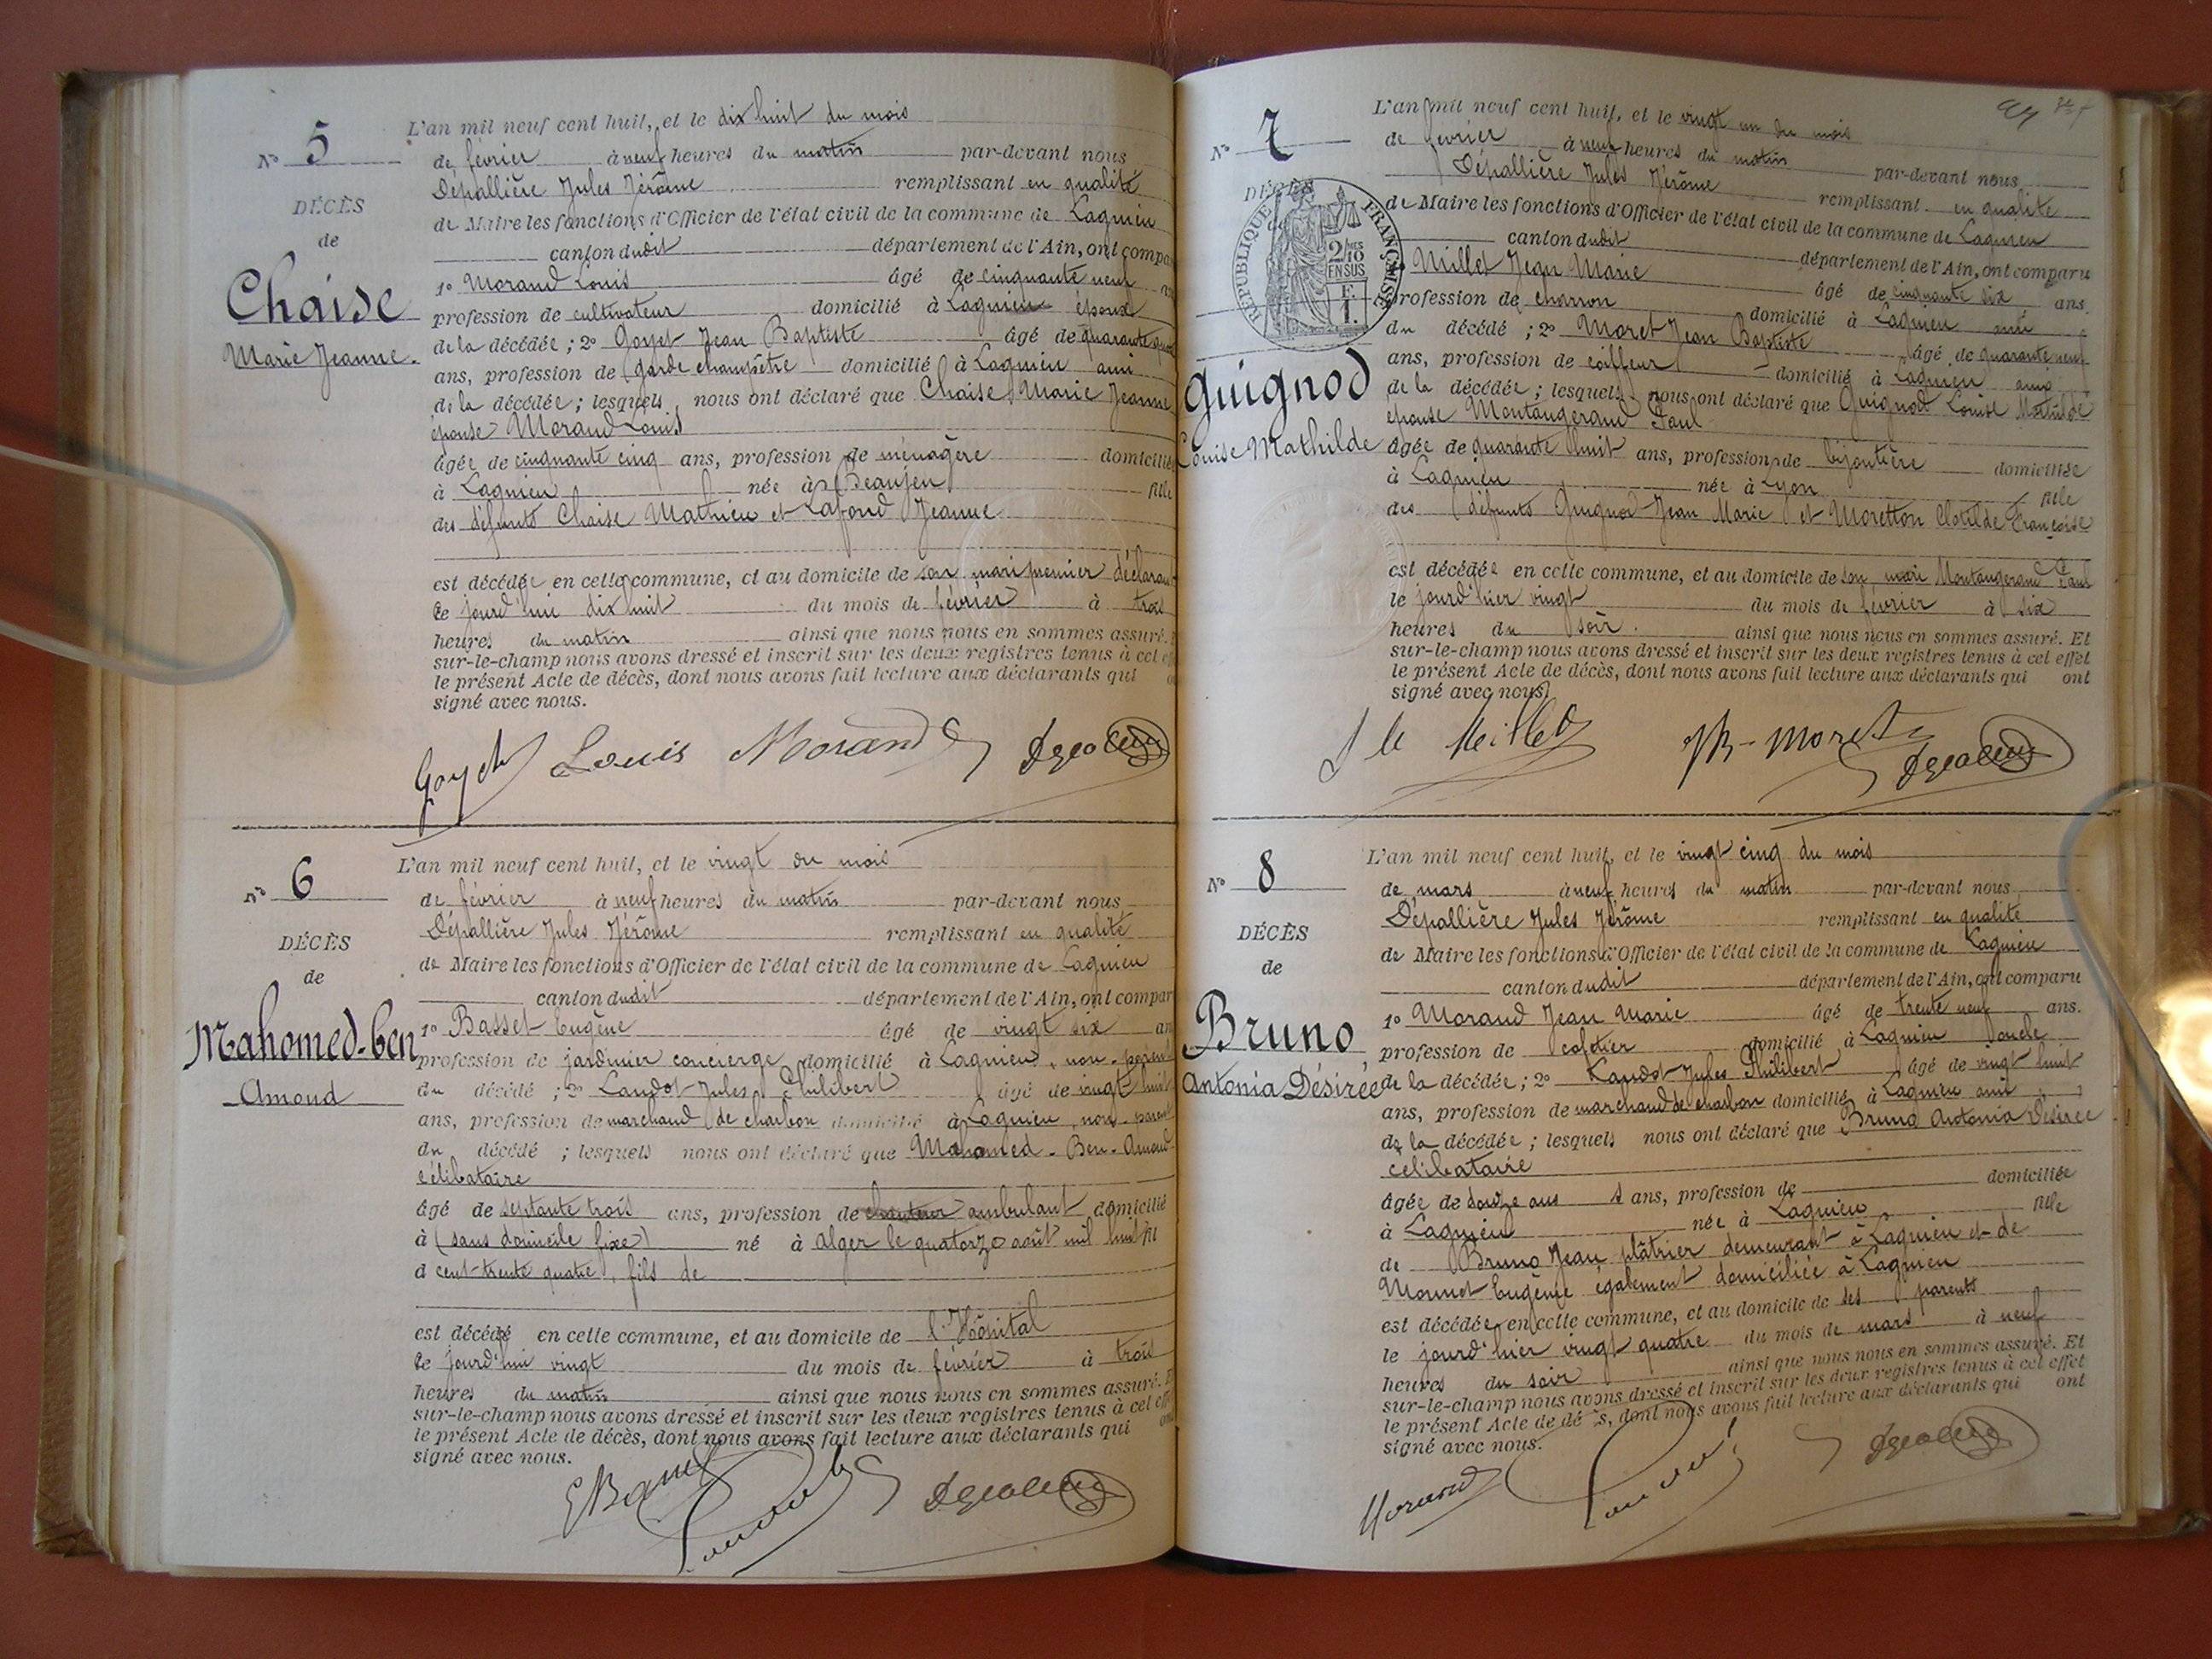 N° 5
DÉCÈS
de
Chaise
Marie Jeanne.
L'an mil neuf cent huit, et le dix huit du mois
de février à neuf heures du matin par-devant nous
Dépallière Jules Jérôme remplissant en qualité
de Maire les fonctions d'Officier de l'état civil de la commune de Lagnieu
canton dudit département de l'Ain, ont compa
1° Morand Louis âgé de cinquante neuf
profession de cultivateur domicilié à Lagnieu époux
de la décédée ; 2° Goyet Jean Baptiste âgé de quarante
ans, profession de garde champêtre domicilié à Lagnieu ami
de la décédée ; lesquels nous ont déclaré que Chaise Marie Jeanne
épouse Morand Louis
âgée de cinquante cinq ans, profession de ménagère domiciliée
à Lagnieu née à Beaujeu fille
des défunts Chaise Mathieu et Lafond Jeanne
est décédée en cette commune, et au domicile de son mari premier déclarant
ce jourd'hui dix huit du mois de février à trois
heures du matin ainsi que nous nous en sommes assuré.
sur-le-champ nous avons dressé et inscrit sur les deux registres tenus à cet
le présent Acte de décès, dont nous avons fait lecture aux déclarants qui
signé avec nous.
Goyet Louis Morand
N° 6
DÉCÈS
de
Mahomed-ben
Amoud
L'an mil neuf cent huit, et le vingt du mois
de février à neuf heures du matin par-devant nous
Dépallière Jules Jérôme remplissant en qualité
de Maire les fonctions d'Officier de l'état civil de la commune de Lagnieu
canton dudit département de l'Ain, ont compar
1° Basset Eugène âgé de vingt six an
profession de jardinier concierge domicilié à Lagnieu, non-parent
du décédé ; 2° Landot Jules Philibert âgé de vingt huit
ans, profession de marchand de charbon domicilié à Lagnieu, non-parent
du décédé ; lesquels nous ont déclaré que Mahomed-Ben-Amoud
célibataire
âgé de septante trois ans, profession de chanteur ambulant domicilié
à (sans domicile fixe) né à Alger le quatorze août mil huit fil
d cent trente quatre, fils de
est décédé en cette commune, et au domicile de l'Hôpital
ce jourd'hui vingt du mois de février à trois
heures du matin ainsi que nous nous en sommes assuré.
sur-le-champ nous avons dressé et inscrit sur les deux registres tenus à cet
le présent Acte de décès, dont nous avons fait lecture aux déclarants qui
signé avec nous.
N° 7
DÉCÈS
RÉPUBLIQUE FRANÇAISE
2/10
EN SUS
Guignod
Louise Mathilde
L'an mil neuf cent huit, et le vingt un du mois
de février à neuf heures du matin par-devant nous
Dépallière Jules Jérôme remplissant en qualité
de Maire les fonctions d'Officier de l'état civil de la commune de Lagnieu
canton dudit département de l'Ain, ont comparu
Millet Jean Marie âgé de cinquante six ans.
profession de charron domicilié à Lagnieu ami
du décédé ; 2° Moret Jean Baptiste âgé de quarante neuf
ans, profession de coiffeur domicilié à Lagnieu ami
de la décédée ; lesquels nous ont déclaré que Guignod Louise Mathilde
épouse Montaugerand Paul
âgée de quarante huit ans, profession de bijoutière domiciliée
à Lagnieu née à Lyon fille
des défunts Guignod Jean Marie et Moretton Clotilde Françoise
est décédée en cette commune, et au domicile de son mari Montaugerand Paul
le jourd'hier vingt du mois de février à six
heures du soir ainsi que nous nous en sommes assuré. Et
sur-le-champ nous avons dressé et inscrit sur les deux registres tenus à cet effet
le présent Acte de décès, dont nous avons fait lecture aux déclarants qui ont
signé avec nous.
Millet Moret
N° 8
DÉCÈS
de
Bruno
Antonia Désirée
L'an mil neuf cent huit, et le vingt cinq du mois
de mars à neuf heures du matin par-devant nous
Dépallière Jules Jérôme remplissant en qualité
de Maire les fonctions d'Officier de l'état civil de la commune de Lagnieu
canton dudit département de l'Ain, ont comparu
1° Morand Jean Marie âgé de trente neuf ans.
profession de cafetier domicilié à Lagnieu oncle
de la décédée ; 2° Landot Jules Philibert âgé de vingt huit
ans, profession de marchand de charbon domicilié à Lagnieu ami
de la décédée ; lesquels nous ont déclaré que Bruno Antonia Désirée
célibataire
âgée de douze ans ans, profession de domiciliée
à Lagnieu née à Lagnieu fille
de Bruno Jean plâtrier demeurant à Lagnieu et de
Monnet Eugénie également domiciliée à Lagnieu
est décédée en cette commune, et au domicile de ses parents
le jourd'hier vingt quatre du mois de mars à neuf
heures du soir ainsi que nous nous en sommes assuré. Et
sur-le-champ nous avons dressé et inscrit sur les deux registres tenus à cet effet
le présent Acte de dé s, dont nous avons fait lecture aux déclarants qui ont
signé avec nous.
Morand